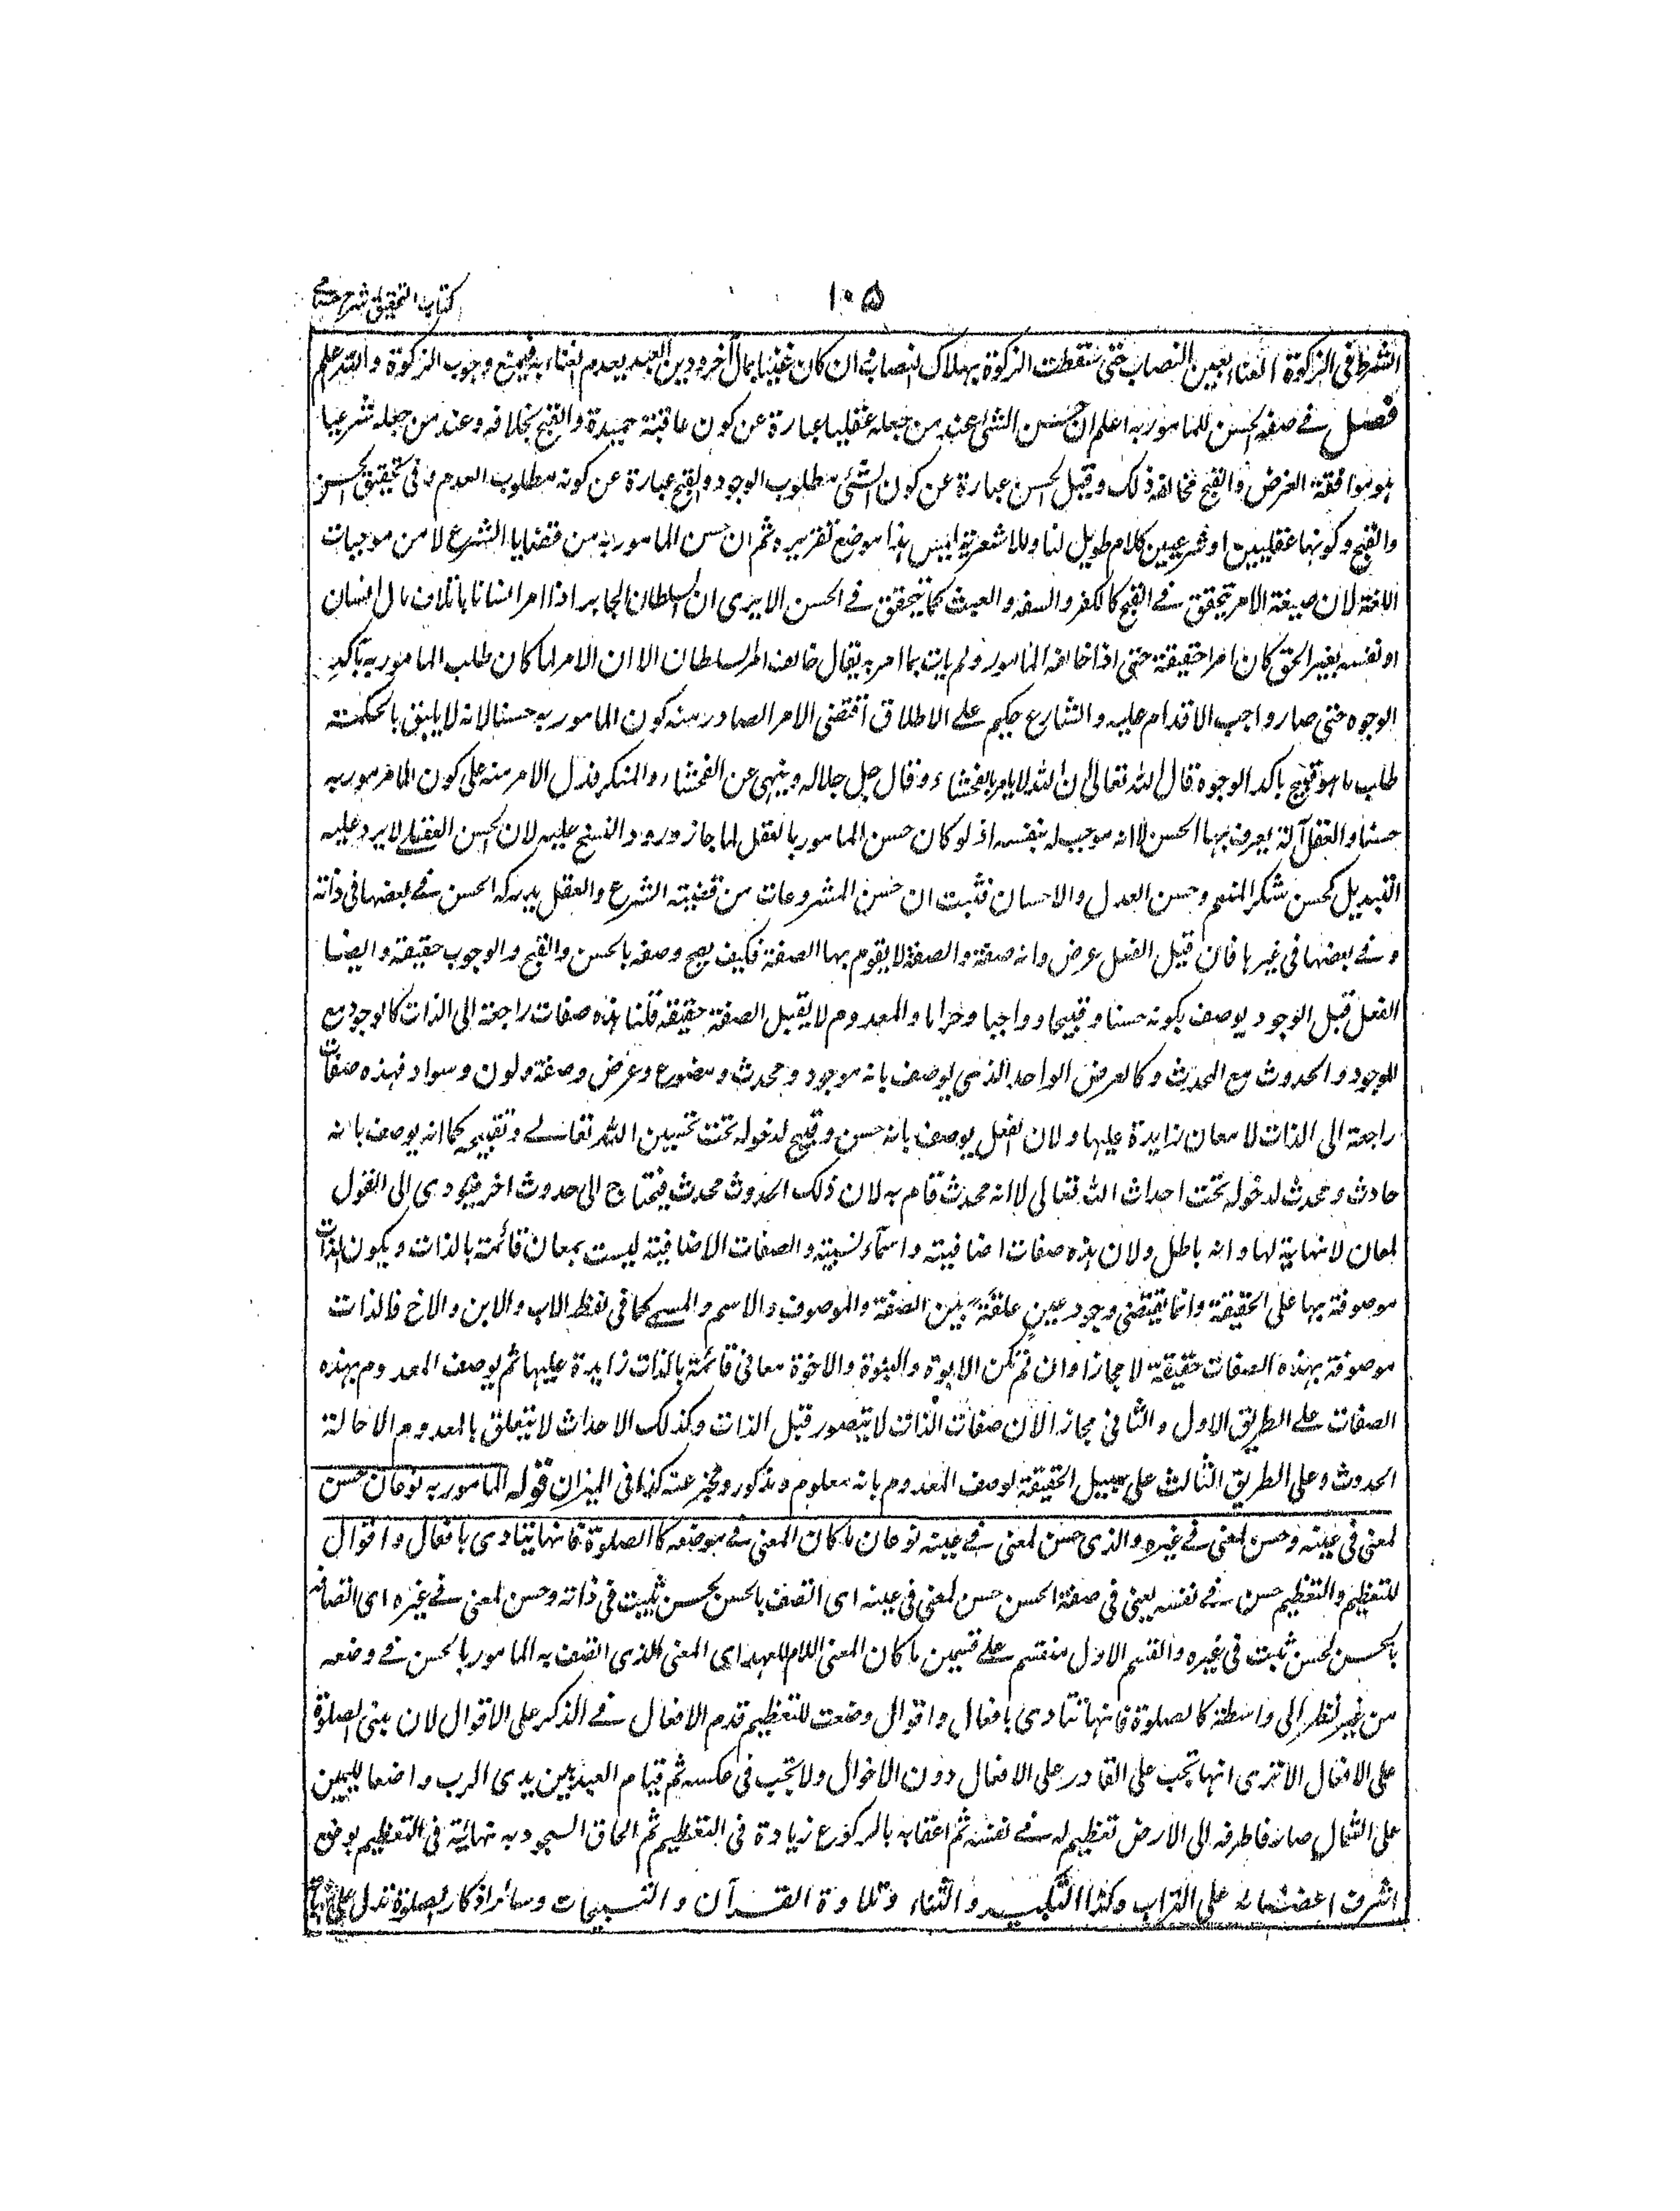 ۱۰۵
كتاب التحقيق شرح حسامى
الشرط فى الزكوة الغناء بعين النصاب حتى سقطت الزكوة بهلاك النصاب وان كان غنيا بمال آخر ودين العبد يعدم الغناء به فيمنع وجوب الزكوة والله اعلم
فصل فے صفة الحسن للمامور به اعلم ان حسن الشئ عند من جعله عقليا عبارة عن كون عاقبته حميدة والقبح بخلافه وعند من جعله شرعيا
هو موافقة الغرض والقبح مخالفة ذلك وقيل الحسن عبارة عن كون الشئ مطلوب الوجود والقبح عبارة عن كونه مطلوب العدم وفى تحقيق الحسن
والقبح وكونهما عقليين او شرعيين كلام طويل لنا وللاشعرية ليس هذا موضع تقريره ثم ان حسن المامور به من قضايا الشرع لا من موجبات
اللغة لان صيغة الامر تتحقق فے القبح كالكفر والسفه والعبث كما تتحقق فے الحسن الا يرى ان السلطان الجابر اذا امر انسانا باتلاف مال انسان
او نفسه بغير الحق كان امرا حقيقة حتى اذا خالفه المامور ولم يات بما امر به يقال خالف امر السلطان الا ان الامر لما كان طلب المامور به بآكد
الوجوه حتى صار واجب الاقدام عليه والشارع حكيم علے الاطلاق اقتضى الامر الصادر منه كون المامور به حسنا لانه لا يليق بالحكمة
طلب ما هو قبيح باكد الوجوه قال الله تعالى ان الله لا يامر بالفحشاء وقال جل جلاله وينهى عن الفحشاء والمنكر فدل الامر منه على كون المامور به
حسنا والعقل آلة يعرف بها الحسن لا انه موجب له بنفسه اذ لو كان حسن المامور بالعقل لما جاز ورود النسخ عليه لان الحسن العقلے لا يرد عليه
التبديل كحسن شكر المنعم وحسن العدل والاحسان فثبت ان حسن المشروعات من قضية الشرع والعقل يدركه الحسن فے بعضها فى ذاته
وفے بعضها فى غيرها فان قيل الفعل عرض وانه صفة والصفة لا يقوم بها الصفة فكيف يصح وصفه بالحسن والقبح والوجوب حقيقة وايضا
الفعل قبل الوجود يوصف بكونه حسنا وقبيحا وواجبا وحراما والمعدوم لا يقبل الصفة حقيقة قلنا هذه صفات راجعة الى الذات كالوجود مع
الموجود والحدوث مع المحدث وكالعرض الواحد الذى يوصف بانه موجود ومحدث ومصنوع وعرض وصفة ولون وسواد فهذه صفات
راجعة الى الذات لا معان زايدة عليها ولان الفعل يوصف بانه حسن وقبيح لدخوله تحت تحسين الله تعالے وتقبيحه كما انه يوصف بانه
حادث ومحدث لدخوله تحت احداث الله تعالى لا انه محدث قام به لان ذلك الحدوث محدث فيحتاج الى حدوث اخر فيودى الى القول
لمعان لا نهاية لها وانه باطل ولان هذه صفات اضافية واسماء نسبية والصفات الاضافية ليست بمعان قائمة بالذات ويكون الذات
موصوفة بها على الحقيقة وانما يقتضى وجود عين علقة بين الصفة والموصوف والاسم والمسمے كما فى لفظ الاب والابن والاخ فالذات
موصوفة بهذه الصفات حقيقة لا مجازا وان لم تكن الابوة والبنوة والاخوة معانى قائمة بالذات زايدة عليها ثم يوصف المعدوم بهذه
الصفات علے الطريق الاول والثانى مجازا لان صفات الذات لا يتصور قبل الذات وكذلك الاحداث لا يتعلق بالمعدوم الا حالة
الحدوث وعلى الطريق الثالث على سبيل الحقيقة لوصف المعدوم بانه معلوم ومذكور ومخبر عنه كذا فى الميزان قوله المامور به نوعان حسن
لمعنى فى عينه وحسن لمعنى فے غيره والذى حسن لمعنى فے عينه نوعان ما كان المعنى فے موضعه كالصلوة فانها يتادى بافعال واقوال
للتعظيم والتعظيم حسن فے نفسه يعنى فى صفة الحسن حسن لمعنى فى عينه اى اتصف بالحسن بحسن ثبت فى ذاته وحسن لمعنى فے غيره اى اتصافه
بالحسن لحسن ثبت فى غيره والقسم الاول منقسم علے قسمين ما كان المعنى اللام للعهد اى المعنى الذى اتصف به المامور بالحسن فے وضعه
من غير نظر الى واسطة كالصلوة فانها تتادى بافعال واقوال وضعت للتعظيم قدم الافعال فے الذكر على الاقوال لان مبنى الصلوة
على الافعال الا ترى انها تجب على القادر على الافعال دون الاقوال ولا تجب فى عكسه ثم قيام العبد بين يدى الرب واضعا لليمين
على الشمال صارفا طرفه الى الارض تعظيم له فے نفسه ثم اعقابه بالركوع زيادة فى التعظيم ثم الحاق السجود به نهاية فى التعظيم بوضع
اشرف اعضائه على التراب وكذا التكبير والثناء وتلاوة القرآن والتسبيحات وسائر اذكار الصلوة تدل على